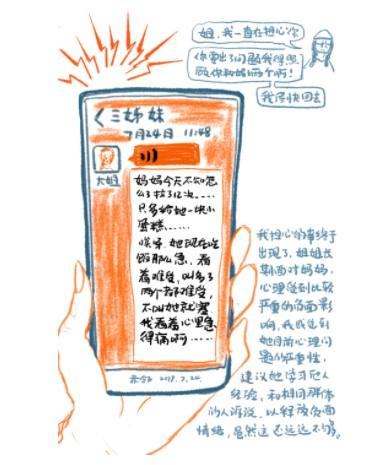 姐，我一直在担心你
你要出了问题我得照
顾你和妈两个啊！
我尽快回去
三姊妹
7月24日 11:48
大姐
妈妈今天不知怎
么了拉了12次……
只多给她一块小
蛋糕……
唉呀，她现在吃
饭那么急，看
着难受，叫多了
两个都难受，
不叫她就塞
我看着心里急
得病啊……
我担心的事终于
出现了，姐姐长
期面对妈妈，
心理受到比较
严重的负面影
响，我感觉到
她目前心理问
题的严重性，
建议她学习他人
经验，和相同群体
的人诉说，以释放负面
情绪，虽然这还远远不够。
2018.7.24.